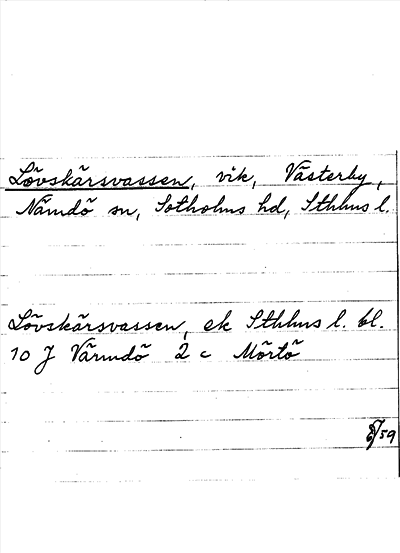 Lövskärsvassen, vik, Västerby,
Nämdö sn, Sotholms hd, Sthlms l.
Lövskärsvassen, ek Sthlms l. bl.
10 J Värmdö 2 c Mörtö
59